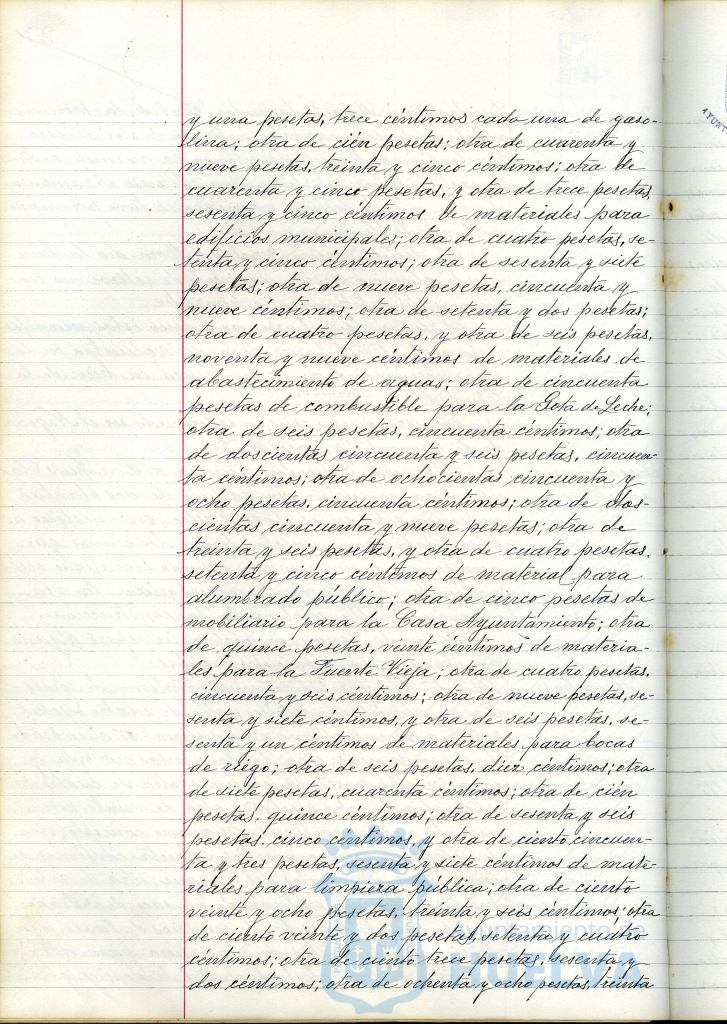 y una pesetas, trece céntimos cada una de gaso-
lina; otra de cién pesetas; otra de cuarenta y
nueve pesetas, treinta y cinco céntimos; otra de
cuarenta y cinco pesetas, y otra de trece pesetas,
sesenta y cinco céntimos de materiales para
edificios municipales; otra de cuatro pesetas, se-
tenta y cinco céntimos; otra de sesenta y siete
pesetas; otra de nueve pesetas, cincuenta y
nueve céntimos; otra de setenta y dos pesetas;
otra de cuatro pesetas, y otra de seis pesetas,
noventa y nueve céntimos de materiales de
abastecimiento de aguas; otra de cincuenta
pesetas de combustible para la Gota de Leche;
otra de seis pesetas, cincuenta céntimos; otra
de doscientas cincuenta y seis pesetas, cincuen-
ta céntimos; otra de ochocientas cincuenta y
ocho pesetas, cincuenta céntimos; otra de dos-
cientas cincuenta y nueve pesetas; otra de
treinta y seis pesetas, y otra de cuatro pesetas,
setenta y cinco céntimos de material para
alumbrado público; otra de cinco pesetas de
mobiliario para la Casa Ayuntamiento; otra
de quince pesetas, veinte céntimos de materia-
les para la Fuente Vieja; otra de cuatro pesetas,
cincuenta y seis céntimos; otra de nueve pesetas, se-
senta y siete céntimos, y otra de seis pesetas, se-
senta y un céntimos de materiales para bocas
de riego; otra de seis pesetas, diez céntimos; otra
de siete pesetas, cuarenta céntimos; otra de cién
pesetas, quince céntimos; otra de sesenta y seis
pesetas, cinco céntimos, y otra de ciento cincuen-
ta y tres pesetas, sesenta y siete céntimos de mate-
riales para limpieza pública; otra de ciento
veinte y ocho pesetas, treinta y seis céntimos; otra
de ciento veinte y dos pesetas, setenta y cuatro
céntimos; otra de ciento trece pesetas, sesenta y
dos céntimos; otra de ochenta y ocho pesetas, treinta
Ayuntamiento de
HUELVA
AYUNT